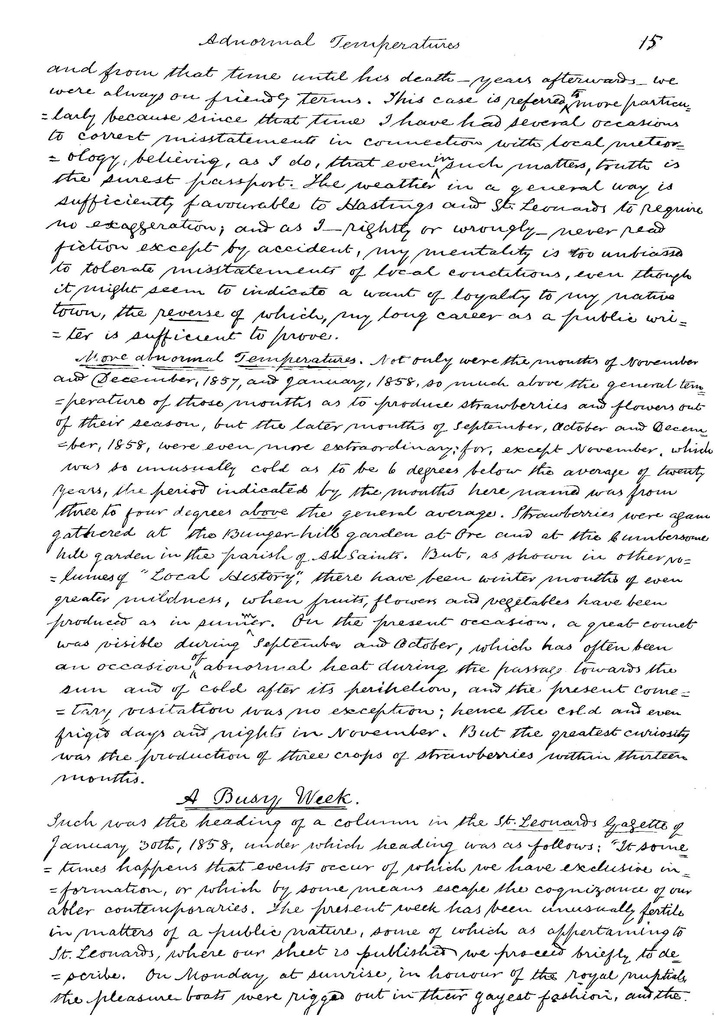 Adnormal Temperatures 15
and from that time until his death – years afterwards – we
were always on friendly terms. This case is referred to more particu=
=larly because since that time I have had several occasions
to correct misstatements in connection with local meteor=
=ology, believing, as I do, that even in such matters, truth is
the surest passport. The weather in a general way is
sufficiently favourable to Hastings and St. Leonards to require
no exaggeration; and as I – rightly or wrongly – never read
fiction except by accident, my mentality is too unbiassed
to tolerate misstatements of local conditions, even though
it might seem to indicate a want of loyalty to my native
town, the reverse of which, my long career as a public wri=
=ter is sufficient to prove.
More abnormal Temperatures. Not only were the months of November
and December, 1857, and January, 1858, so much above the general tem=
=perature of those months as to produce strawberries and flowers out
of their season, but the later months of September, October and Decem=
=ber, 1858, were even more extraordinary; for, except November, which
was so unusually cold as to be 6 degrees below the average of twenty
years, the period indicated by the months here named was from
three to four degrees above the general average. Strawberries were again
gathered at the Bunger-hill garden at Ore and at the Cumbersome
hill garden in the parish of All Saints. But, as shown in other vo=
=lumes of "Local History", there have been winter months of even
greater mildness, when fruits, flowers and vegetables have been
produced as in summer. On the present occasion, a great comet
was visible during September and October, which has often been
an occasion of abnormal heat during the passage towards the
sun and of cold after its perihelion, and the present come=
=tary visitation was no exception; hence the cold and even
frigid days and nights in November. But the greatest curiosity
was the production of three crops of strawberries within thirteen
months.
A Busy Week.
Such was the heading of a column in the St. Leonards Gazette of
January 30th, 1858, under which heading was as follows: "It some=
=times happens that events occur of which we have exclusive in=
=formation, or which by some means escape the cognizance of our
abler contemporaries. The present week has been unusually fertile
in matters of a public nature, some of which as appertaining to
St. Leonards, where our sheet is published, we proceed briefly to de=
=scribe. On Monday at sunrise, in honour of the royal nuptials,
the pleasure boats were rigged out in their gayest fashion, and the